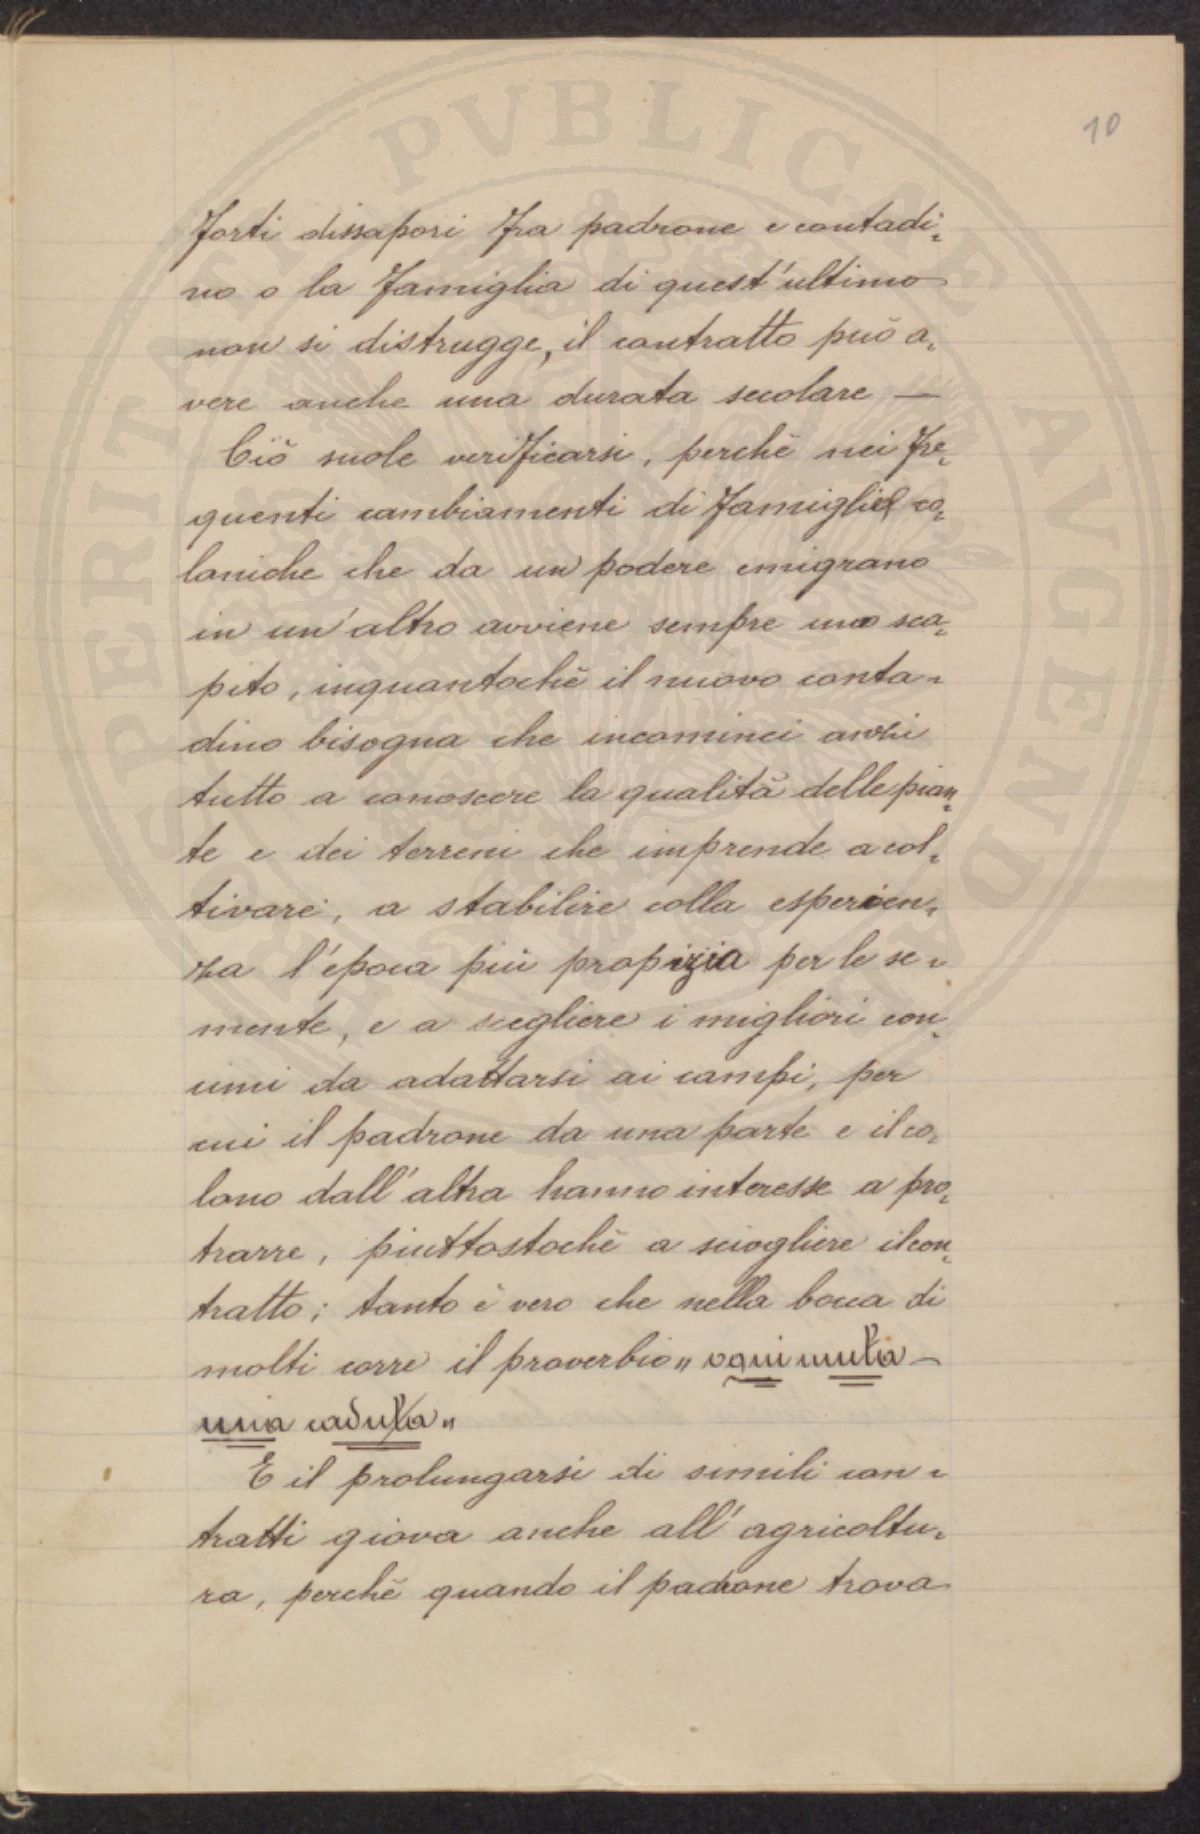 10
forti dissapori fra padrone e contadi=
no o la famiglia di quest'ultimo
non si distrugge, il contratto può a=
vere anche una durata secolare —
Ciò suole verificarsi, perchè nei fre=
quenti cambiamenti di famiglie co=
loniche che da un podere emigrano
in un'altro avviene sempre uno sca=
pito, inquantochè il nuovo conta=
dino bisogna che incominci anzi
tutto a conoscere la qualità delle pian=
te e dei terreni che imprende a col=
tivare, a stabilire colla esperien=
za l'epoca più propizia per le se=
mente, e a scegliere i migliori con=
cimi da adattarsi ai campi, per
cui il padrone da una parte e il co=
lono dall'altra hanno interesse a pro=
trarre, piuttostochè a sciogliere il con=
tratto; tanto è vero che nella bocca di
molti corre il proverbio „ ogni muta —
una caduta „
E il prolungarsi di simili con=
tratti giova anche all'agricoltu=
ra, perchè quando il padrone trova
PERITATI PVBLICAE AVGENDAE